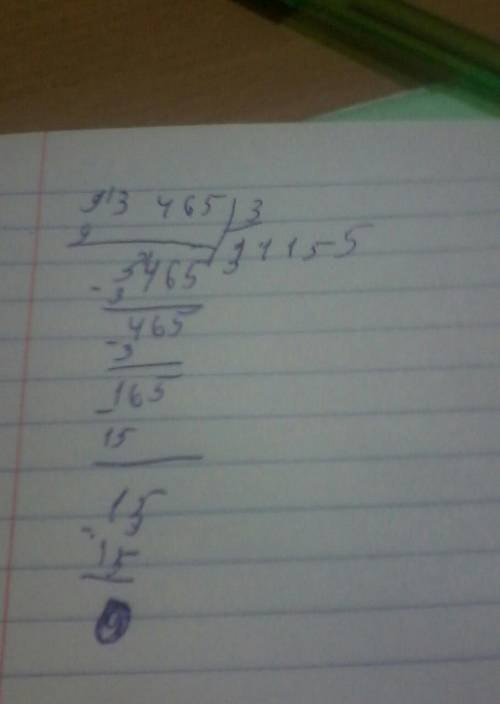 913 465 3
9 31155
3465
- 3
465
- 3
165
-
15
15
- 15
0